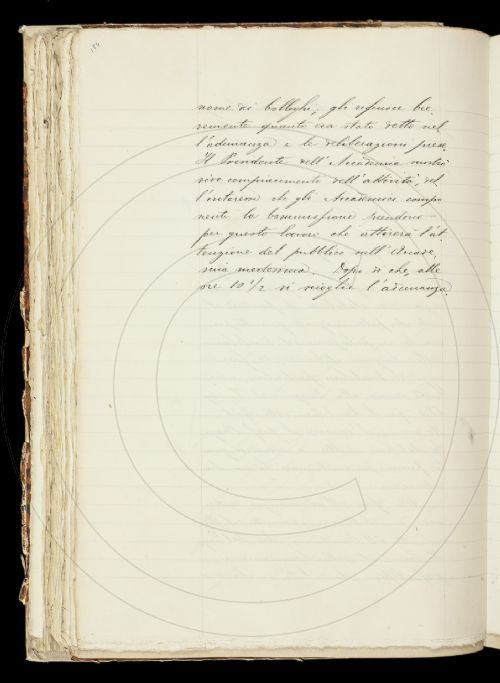 184
nome dei Colleghi, gli riferisce bre
vemente quanto era stato detto nel
l'adunanza e le deliberazioni prese.
Il Presidente dell'Accademia mostra
vivo compiacimento dell'attività, del
l'interesse che gli Accademici compo
nenti la Commissione prendono
per questo lavoro che attirerà l'at
tenzione del pubblico sull'Accade,
mia medesima. Dopo di che, alle
ore 10 1/2 si scioglie l'adunanza.